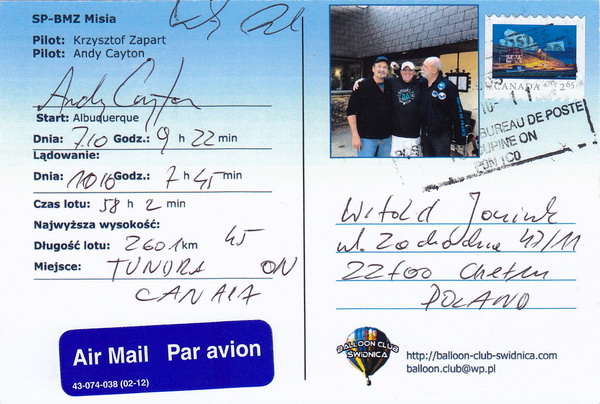 SP-BMZ Misia
Pilot: Krzysztof Zapart
Pilot: Andy Cayton
Andy Cayton
Start: Albuquerque
Dnia: 7.10 Godz.: 9 h 22 min
Lądowanie:
Dnia: 10.10 Godz.: 7 h 45 min
Czas lotu: 58 h 2 min
Najwyższa wysokość:
Długość lotu: 2601 km 45
Miejsce: TUNDRA ON
CANADA
Air Mail Par avion
43-074-038 (02-12)
CANADA
BUREAU DE POSTE
ON
Witold
ul. Zachodnia 47/11
22-100 Chełm
POLAND
BALLOON CLUB
SWIDNICA
http://balloon-club-swidnica.com
balloon.club@wp.pl